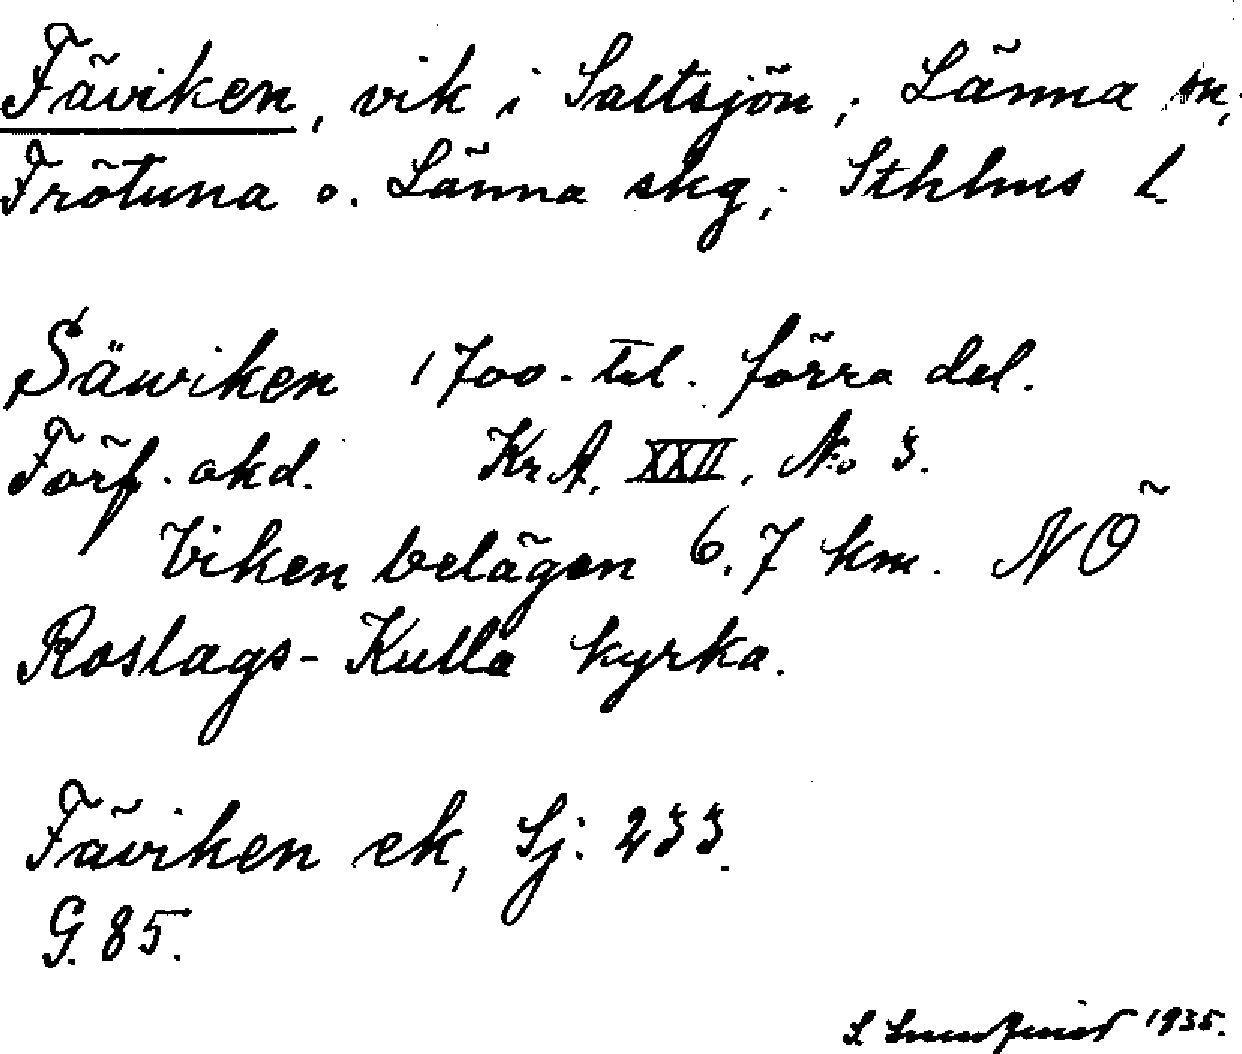 Fäviken, vik i Saltsjön; Länna sn,
Frötuna o. Länna skg; Sthlms l.
Säwiken 1700-tal. förra del.
Förf. okd. Kr.A. XXII, No 3.
Viken belägen 6.7 km. NÖ
Roslags-Kulla kyrka.
Fäviken ek, Sj: 233.
G. 85.
S. 1935.